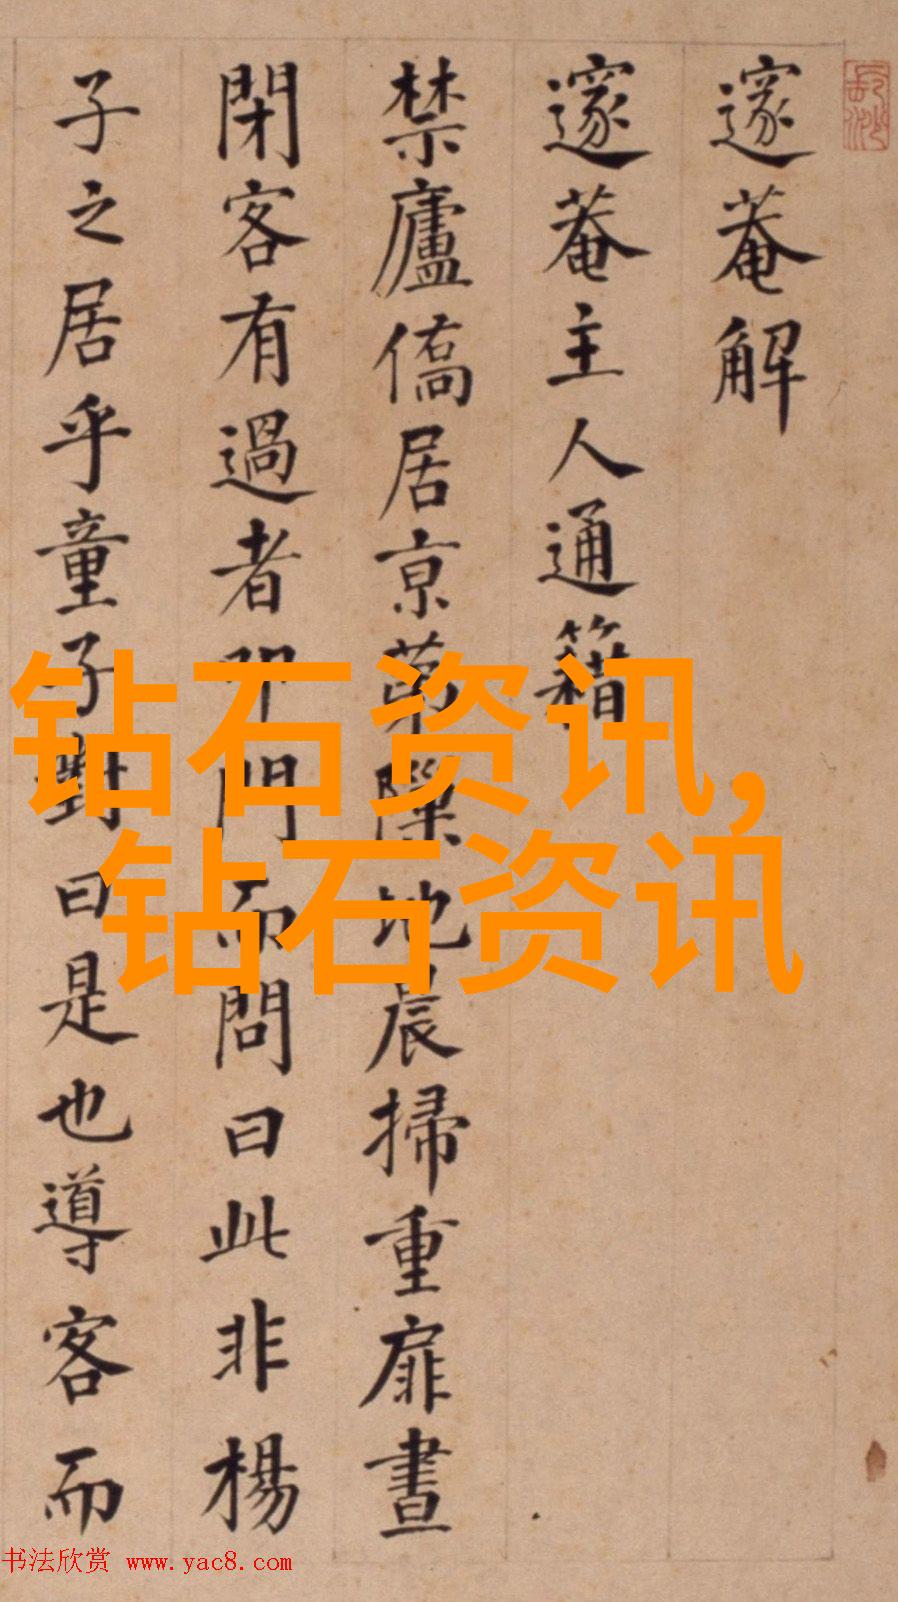 邃菴解
邃菴主人通籍
禁廬僑居京苐隙地晨掃重扉晝
閉客有過者叩門而問曰此非楊
子之居乎童子對曰是也導客而
钻石资讯,
钻石资讯
书法欣赏 www.yac8.com